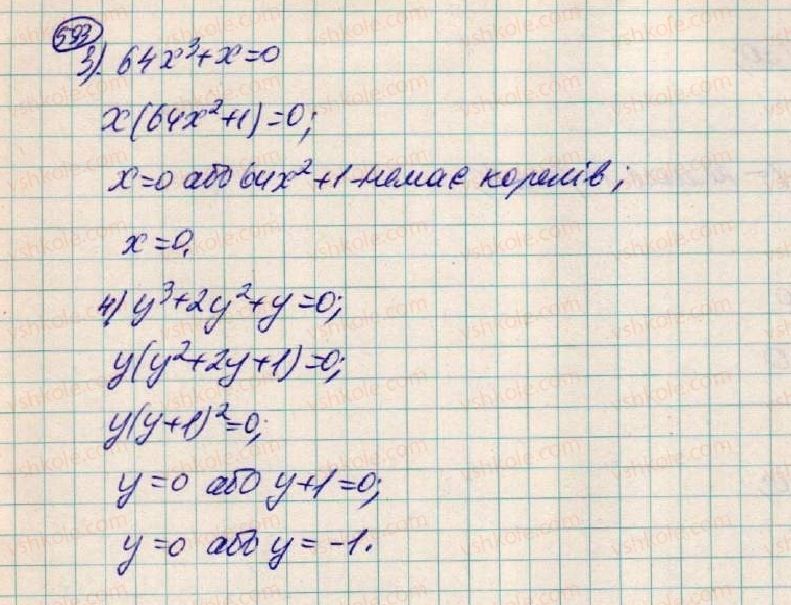 593
3). 64x³+x=0
x(64x²+1)=0;
x=0 або 64x²+1-немає коренів;
x=0.
4) y³+2y²+y=0;
y(y²+2y+1)=0;
y(y+1)²=0;
y=0 або y+1=0;
y=0 або y=-1.
vshkole.com